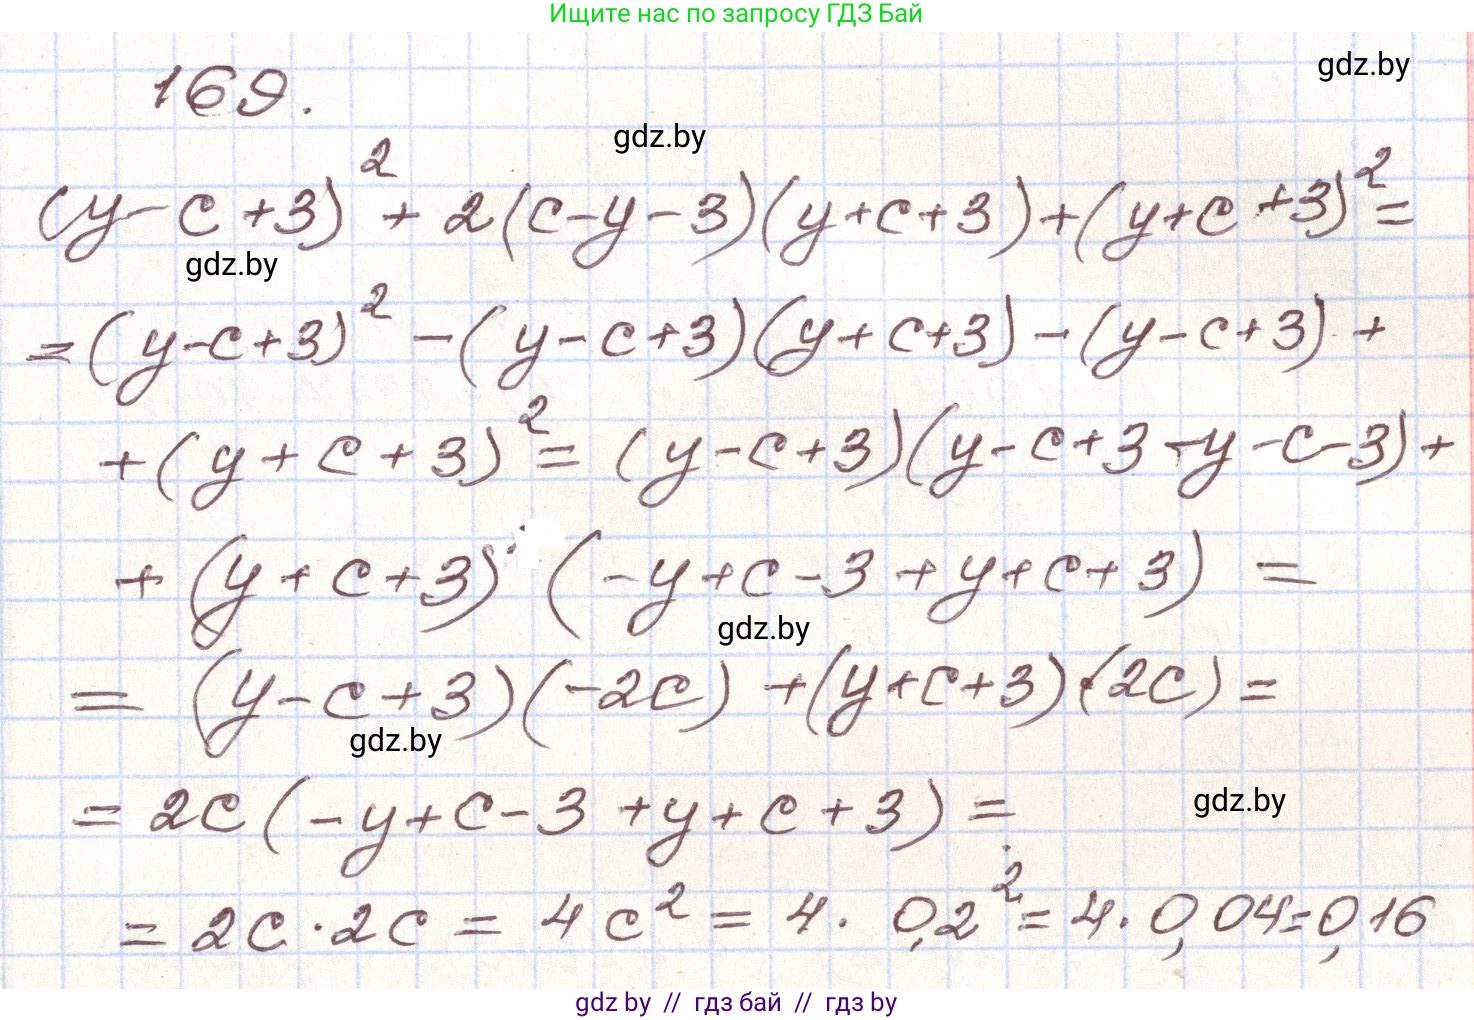 Ищите нас по запросу ГДЗ Бай
gdz.by
169.
gdz.by
(y-c+3)²+2(c-y-3)(y+c+3)+(y+c+3)²=
gdz.by
=(y-c+3)²-(y-c+3)(y+c+3)-(y-c+3)+
+(y+c+3)²=(y-c+3)(y-c+3-y-c-3)+
+(y+c+3)·(-y+c-3+y+c+3)=
gdz.by
=(y-c+3)(-2c)+(y+c+3)·(2c)=
gdz.by
=2c(-y+c-3+y+c+3)=
gdz.by
=2c·2c=4c²=4·0,2²=4·0,04=0,16
gdz by // гдз бай // гдз by